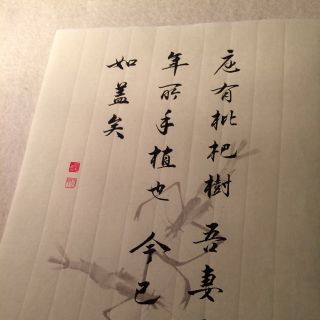 庭有枇杷樹吾妻
年所手植也今已
如盖矣